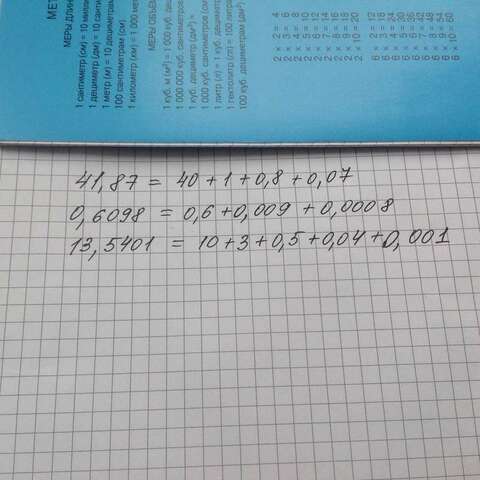 МЕТ
МЕРЫ ДЛИН
1 сантиметр (см) = 10 милли
1 дециметр (дм) = 10 санти
1 метр (м) = 10 дециметрам
100 сантиметрам (см)
1 километр (км) = 1 000 мет
МЕРЫ ОБЪЕМ
1 куб. м (м³) = 1 000 куб. дец
1 000 000 куб. сантиметров
1 куб. дециметр (дм³) =
1 000 куб. сантиметров (см
1 литр (л) = 1 куб. дециметр
1 гектолитр (гл) = 100 литра
100 куб. дециметрам (дм³)
2 × 2 = 4
2 × 3 = 6
2 × 4 = 8
2 × 5 = 10
2 × 6 = 12
2 × 7 = 14
2 × 8 = 16
2 × 9 = 18
2 × 10 = 20
6 × 2 = 12
6 × 3 = 18
6 × 4 = 24
6 × 5 = 30
6 × 6 = 36
6 × 7 = 42
6 × 8 = 48
6 × 9 = 54
6 × 10 = 60
41,87 = 40 + 1 + 0,8 + 0,07
0,6098 = 0,6 + 0,009 + 0,0008
13,5401 = 10 + 3 + 0,5 + 0,04 + 0,001